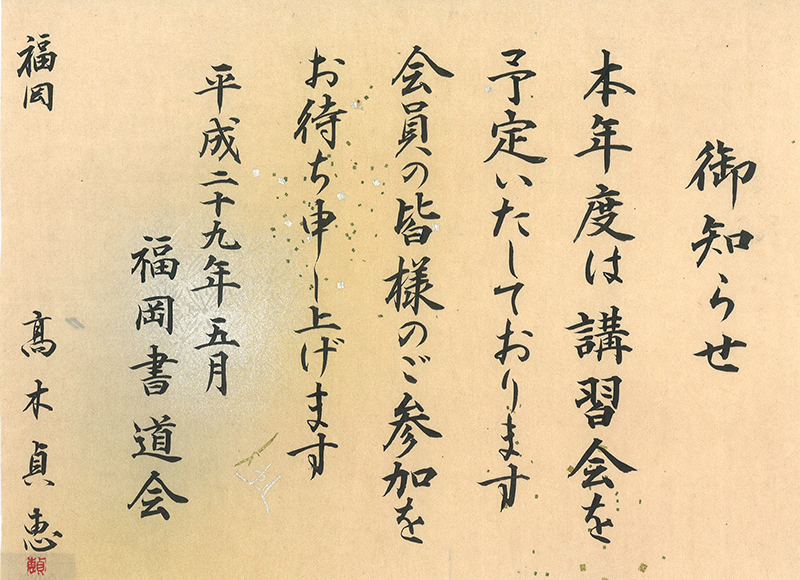 御知らせ
本年度は講習会を
予定いたしております
会員の皆様のご参加を
お待ち申し上げます
平成二十九年五月
福岡書道会
福岡 髙木貞恵